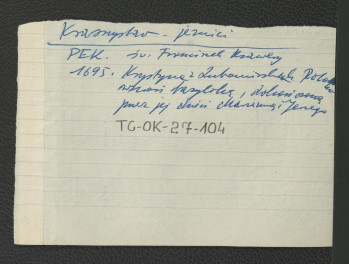 Krasnystaw - jezuici
PEK. św. Franciszek Ksawery
1695. Krystyna z Lubomirskich Potocka
wznosi kaplicę,
przez jej dzieci Mariannę i Jerzego
TG-OK-27-104